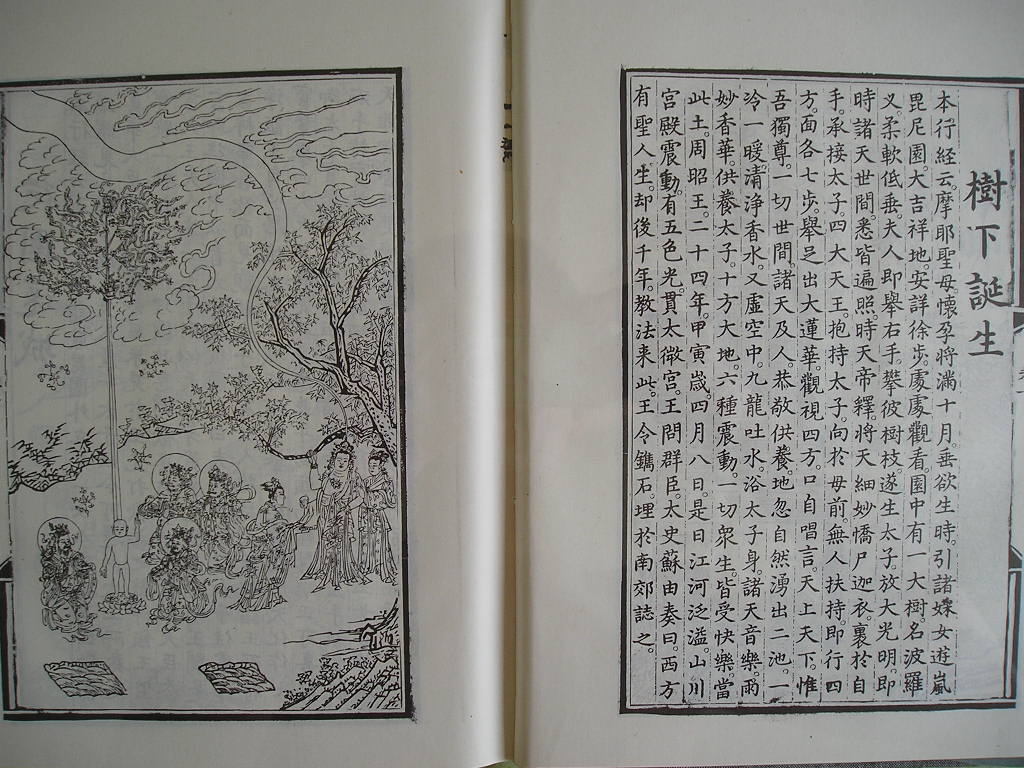 樹下誕生
本行経云。摩耶聖母懷孕將滿十月。垂欲生時。引諸婇女遊嵐
毘尼園。大吉祥地。安詳徐步。處處觀看。園中有一大樹。名波羅
叉。柔軟低垂。夫人即舉右手。攀彼樹枝。遂生太子。放大光明。即
時諸天世間。悉皆遍照。時天帝釋。將天細妙憍尸迦衣。裹於自
手。承接太子。四大天王。抱持太子。向於母前。無人扶持。即行四
方。面各七步。舉足出大蓮華。觀視四方。口自唱言。天上天下。惟
吾獨尊。一切世間。諸天及人。恭敬供養。地忽自然湧出二池。一
冷一暖。清淨香水。又虛空中。九龍吐水。浴太子身。諸天音樂。雨
妙香華。供養太子。十方大地。六種震動。一切眾生。皆受快樂。當
此土。周昭王二十四年。甲寅歲。四月八日。是日江河泛溢。山川
宮殿震動。有五色光。貫太微宮。王問群臣。太史蘇由奏曰。西方
有聖人生。却後千年。教法來此。王令鐫石。埋於南郊誌之。